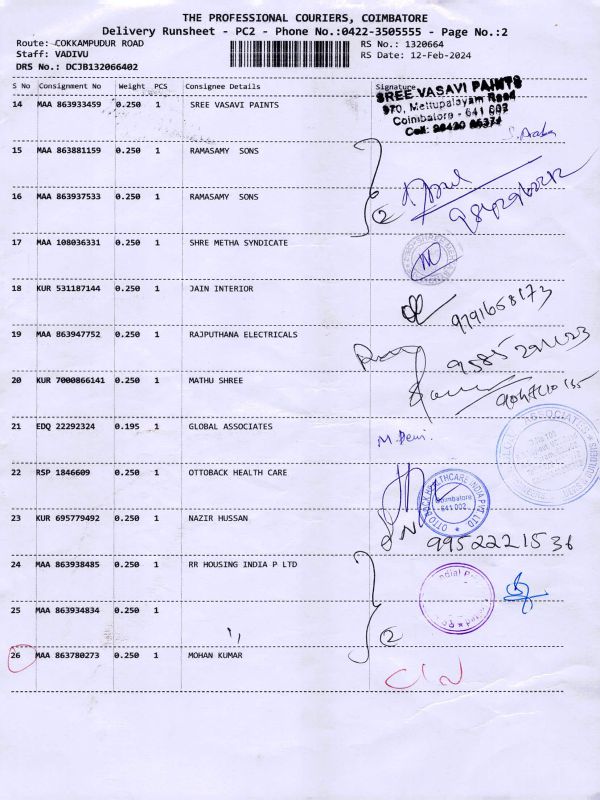 THE PROFESSIONAL COURIERS, COIMBATORE
Delivery Runsheet - PC2 - Phone No.:0422-3505555 - Page No.:2
Route: COKKAMPUDUR ROAD RS No.: 1320664
Staff: VADIVU RS Date: 12-Feb-2024
DRS No.: DCJB132066402
S No Consignment No Weight PCS Consignee Details Signature
14 MAA 863933459 0.250 1 SREE VASAVI PAINTS
SREE VASAVI PAINTS
970, Mettupalayam Road
Coimbatore - 641 002
Cell:
15 MAA 863881159 0.250 1 RAMASAMY SONS
16 MAA 863937533 0.250 1 RAMASAMY SONS
2
17 MAA 108036331 0.250 1 SHRE METHA SYNDICATE
18 KUR 531187144 0.250 1 JAIN INTERIOR
9791658173
19 MAA 863947752 0.250 1 RAJPUTHANA ELECTRICALS
20 KUR 7000866141 0.250 1 MATHU SHREE
21 EDQ 22292324 0.195 1 GLOBAL ASSOCIATES
ASSOCIATES
22 RSP 1846609 0.250 1 OTTOBACK HEALTH CARE
OTTO BACK HEALTHCARE INDIA PVT. LTD.
Coimbatore
641 002
23 KUR 695779492 0.250 1 NAZIR HUSSAN
9952221536
24 MAA 863938485 0.250 1 RR HOUSING INDIA P LTD
25 MAA 863934834 0.250 1
2
26 MAA 863780273 0.250 1 MOHAN KUMAR